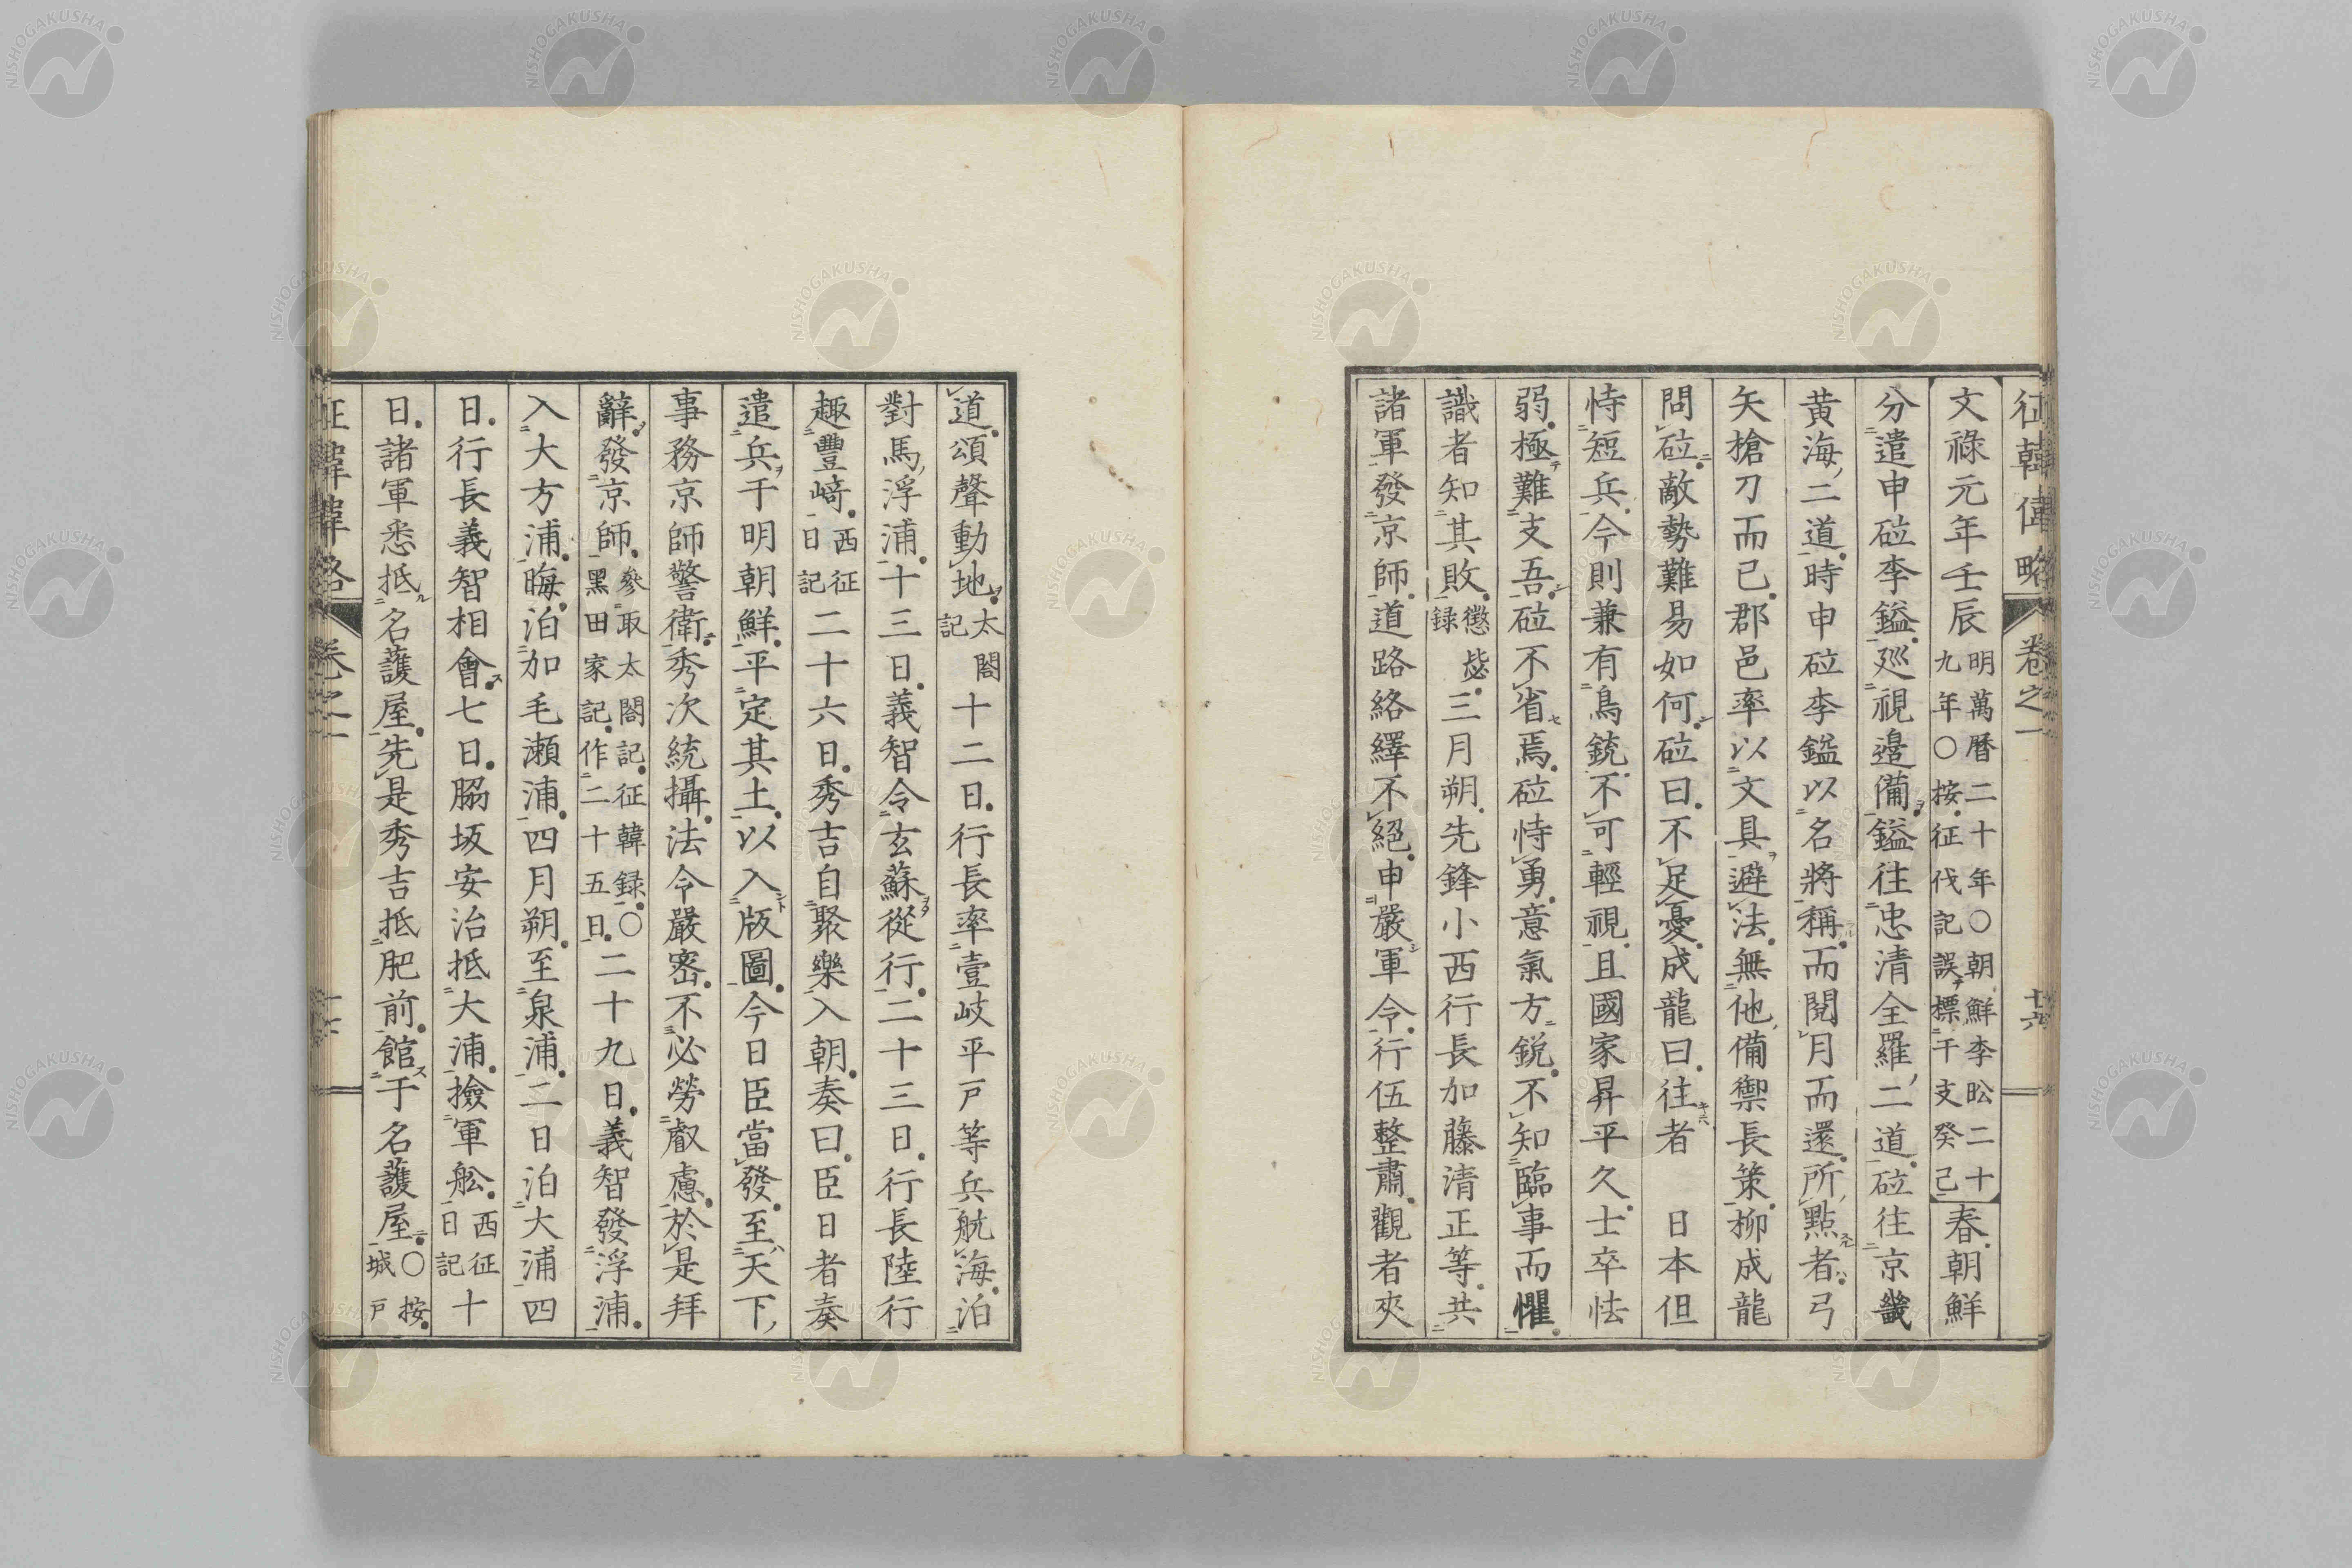 征韓偉略 卷之一 十六
文祿元年壬辰 明萬曆二十年〇朝鮮李昖二十九年〇按征伐記誤標干支癸巳 春朝鮮
分遣申砬李鎰巡視邊備鎰往忠清全羅二道砬往京畿
黃海二道時申砬李鎰以名將稱而閱月而還所點者弓
矢槍刀而已郡邑率以文具避法無他備禦長策柳成龍
問砬敵勢難易如何砬曰不足憂成龍曰往者 日本但
恃短兵今則兼有鳥銃不可輕視且國家昇平久士卒怯
弱極難支吾砬不省焉砬恃勇意氣方銳不知臨事而懼
識者知其敗 懲毖録 三月朔先鋒小西行長加藤清正等共
諸軍發京師道路絡繹不絕申嚴軍令行伍整肅觀者夾
道頌聲動地 太閤記 十二日行長率壹岐平戸等兵航海泊
對馬浮浦十三日義智令玄蘇從行二十三日行長陸行
趣豐﨑 西征日記 二十六日秀吉自聚樂入朝奏曰臣日者奏
遣兵于明朝鮮平定其土以入版圖今日臣當發至天下
事務京師警衛秀次統攝法令嚴密不必勞叡慮於是拜
辭發京師 參取太閤記征韓録〇黑田家記作二十五日 二十九日義智發浮浦
入大方浦晦泊加毛瀬浦四月朔至泉浦二日泊大浦四
日行長義智相會七日脇坂安治抵大浦撿軍舩 西征日記 十
日諸軍悉抵名護屋先是秀吉抵肥前館于名護屋 〇按城戸
卷之一